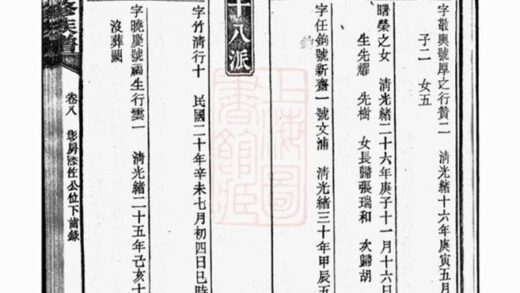 字敬輿號厚之行贊二　清光緒十六年庚寅五月
子二　女五
曙榮之女　清光緒二十六年庚子十一月十六日
生先耀　先樹　女長歸張瑞和　次歸胡
字任鈞號新齋一號文浦　清光緒三十年甲辰五
十八派
字竹清行十　民國二十年辛未七月初四日巳時
字曉慶號福生行雲一　清光緒二十五年己亥十
沒葬闕
族譜
卷八
公位下齒錄
上海圖書館藏